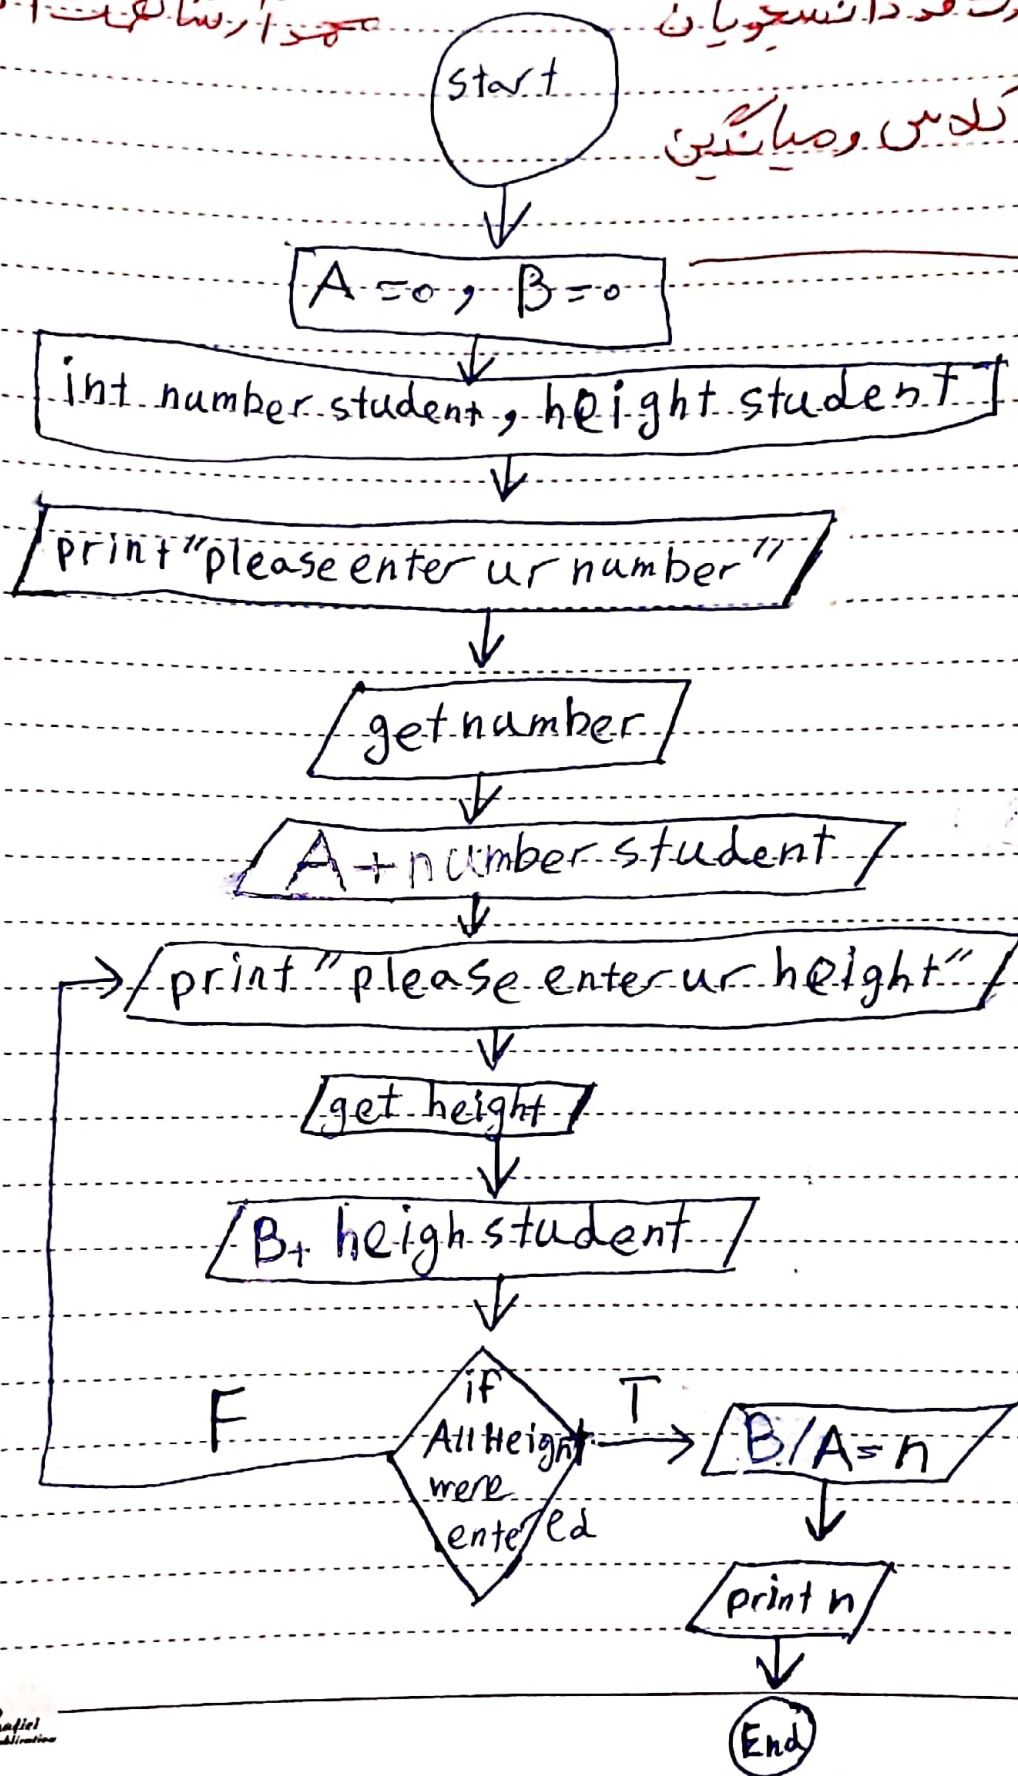 قد دانشجویان
start
کلاس و میانگین
A = 0, B = 0
int number student, height student
print "please enter ur number"
get number
A + number student
print "please enter ur height"
get height
B + heigh student
F
if
All Height
were
entered
T
B/A = n
print n
End